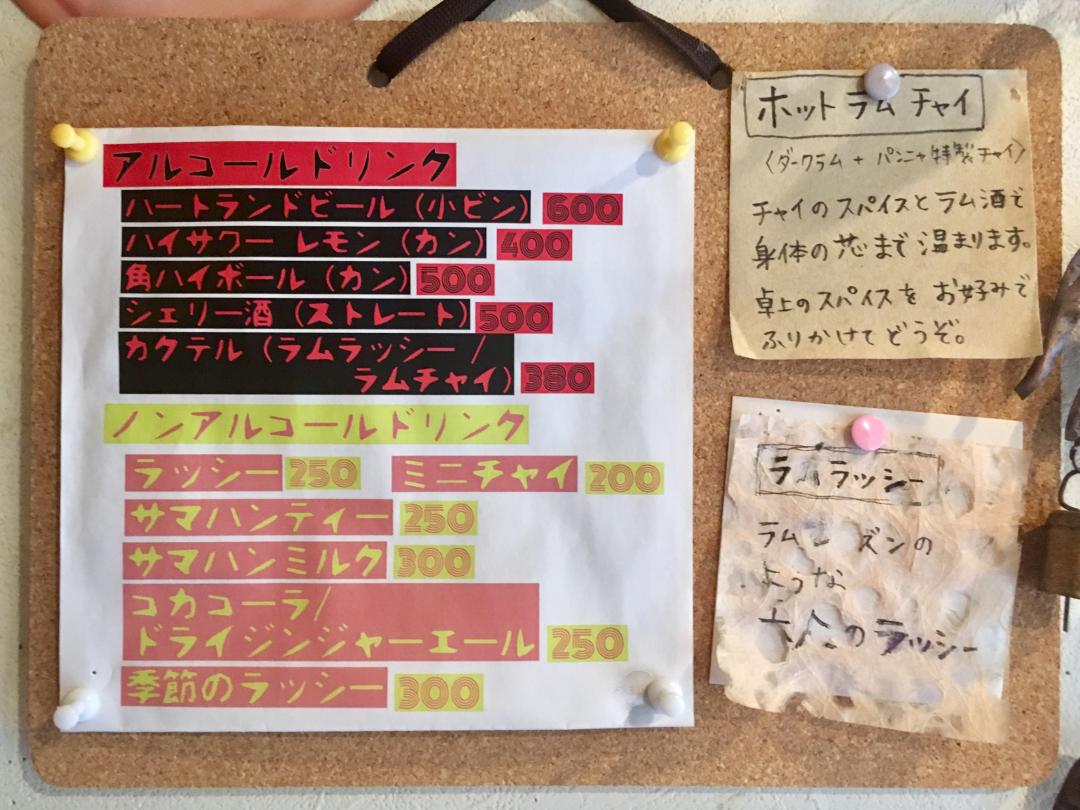 アルコールドリンク
ハートランドビール（小ビン） 600
ハイサワー レモン（カン） 400
角ハイボール（カン） 500
シェリー酒（ストレート） 500
カクテル（ラムラッシー /
ラムチャイ） 380
ノンアルコールドリンク
ラッシー 250 ミニチャイ 200
サマハンティー 250
サマハンミルク 300
コカコーラ/
ドライジンジャーエール 250
季節のラッシー 300
ホットラムチャイ
〈ダークラム + パンニャ特製チャイ〉
チャイのスパイスとラム酒で
身体の芯まで温まります。
卓上のスパイスをお好みで
ふりかけてどうぞ。
ラムラッシー
ラムレーズンの
ような
大人のラッシー